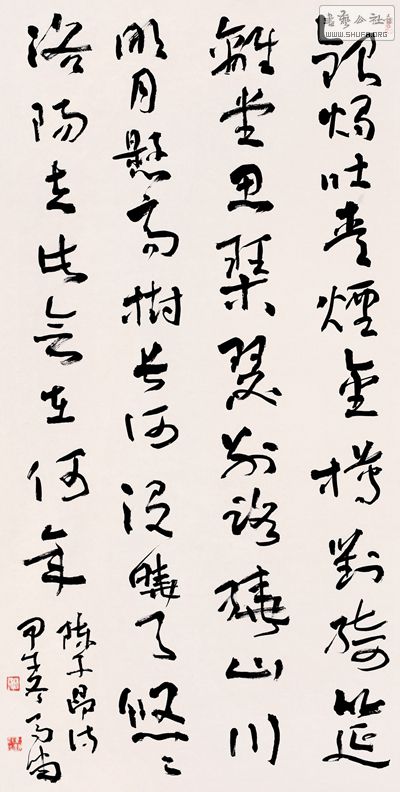 書藝公社
WWW.SHUFA.ORG
銀燭吐青煙金樽對綺筵
離堂思琴瑟別路繞山川
明月懸高樹長河沒曉天悠〻
洛陽去此會在何年
陳子昂詩
甲冬馬